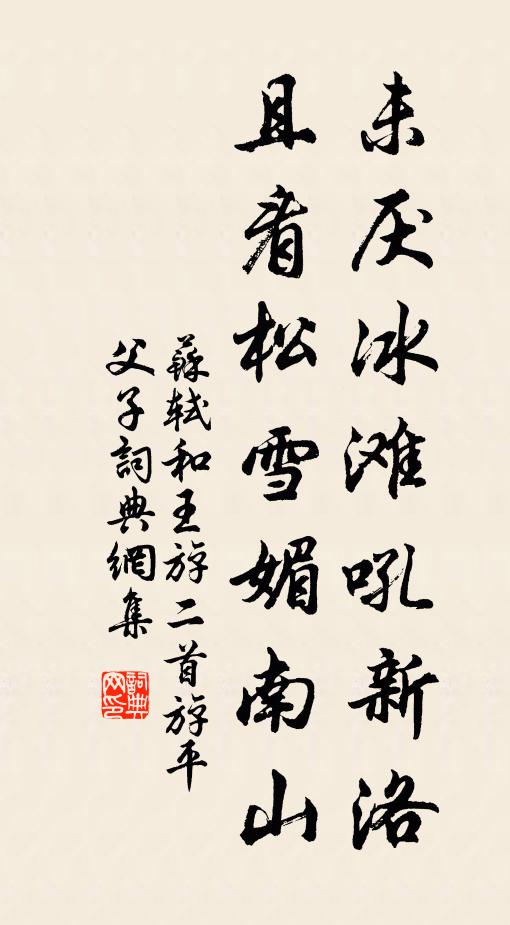 未厌冰滩吼新洛
且看松雪媚南山
蘇軾和王斿二首斿平
父子詞典網集
詞典网印